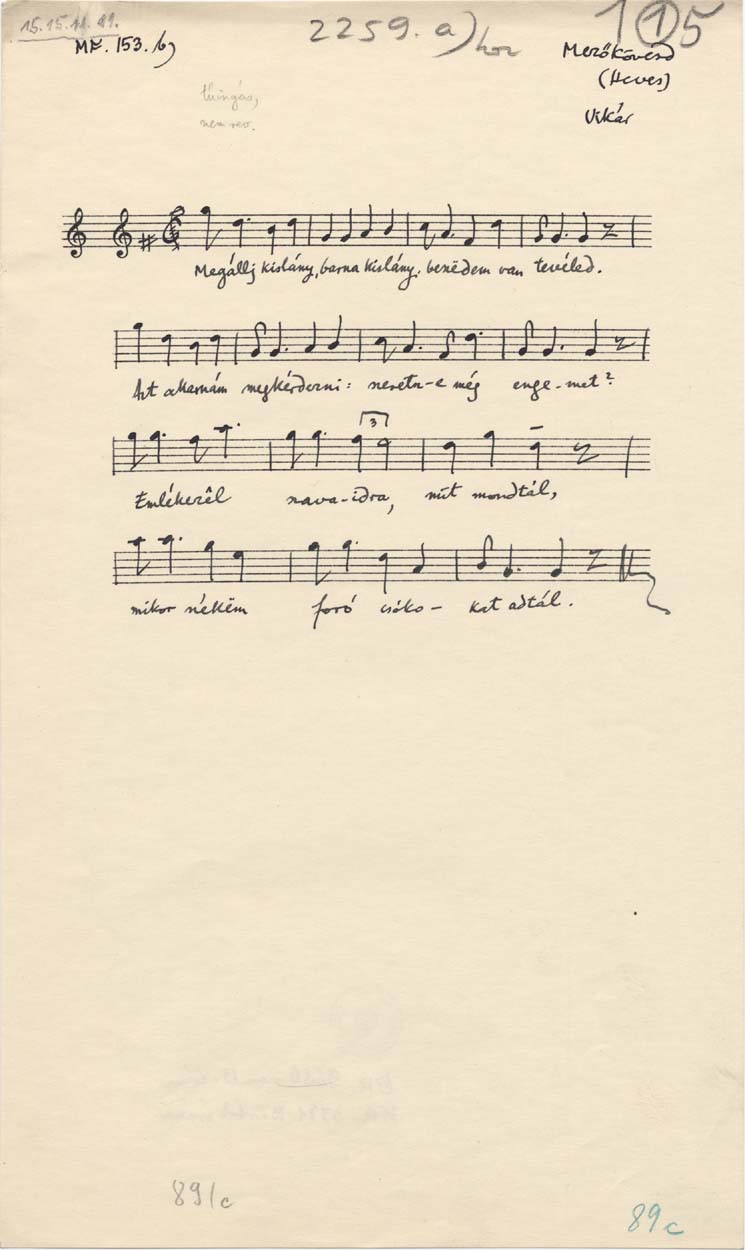 15.15.11.11.
2259. a) hoz
115
MF. 153. b)
Mezőkövesd
(Heves)
nem rev.
Vikár
Megállj kislány, barna kislány, beszédem van tevéled.
Azt akarnám megkérdezni: szeretsz-e még enge-met?
3
Emlékezêl szava-idra, mit mondtál,
mikor nékëm forró csóko- kat adtál.
89/c
89c